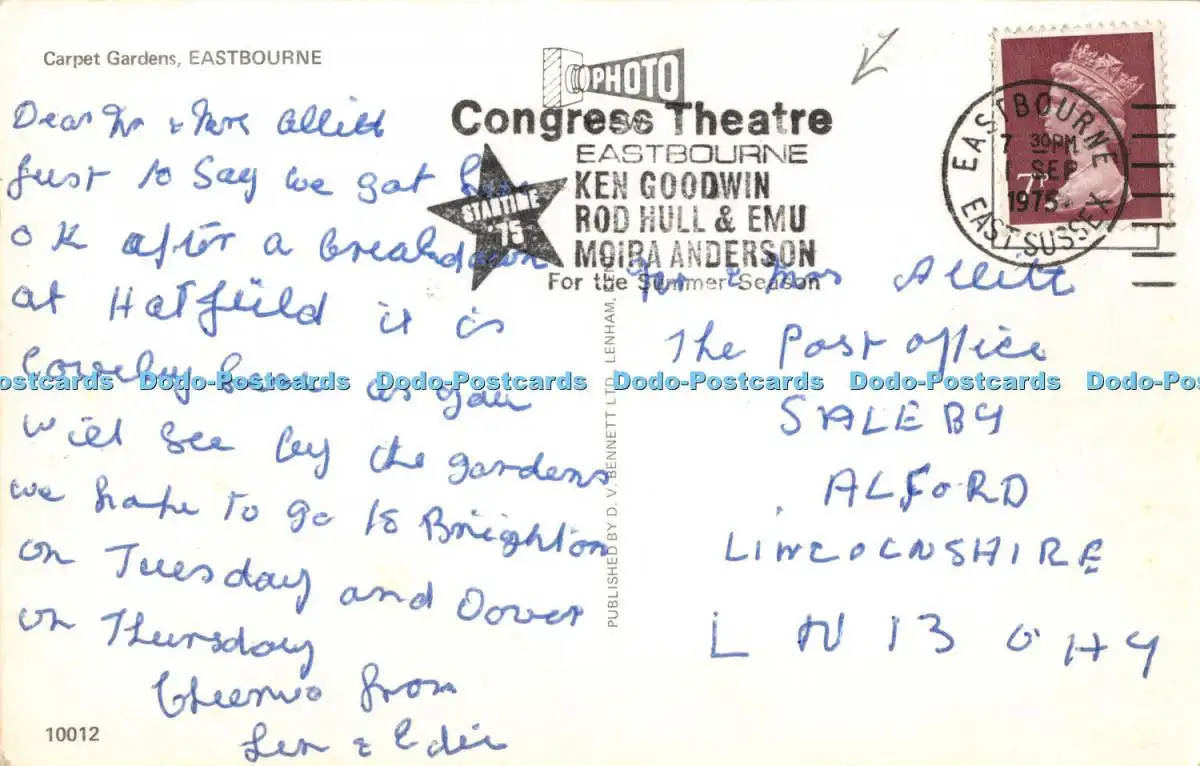 Carpet Gardens, EASTBOURNE
PHOTO
Congress Theatre
EASTBOURNE
STARTIME
'75
KEN GOODWIN
ROD HULL & EMU
MOIRA ANDERSON
For the Summer Season
EASTBOURNE
7 30PM
1 SEP
1975
EAST SUSSEX
7P
Dear Mr & Mrs Allitt
Just to Say we got here
OK after a breakdown
at Hatfield it is
lovely here as you
will see by the gardens
we hope to go to Brighton
on Tuesday and Dover
on Thursday
Cheerio from
Len & Edie
10012
PUBLISHED BY D. V. BENNETT LTD. LENHAM,
Mr & Mrs Allitt
The Post office
SALEBY
ALFORD
LINCOLNSHIRE
LN13 0HY
Dodo-Postcards Dodo-Postcards Dodo-Postcards Dodo-Postcards Dodo-Postcards